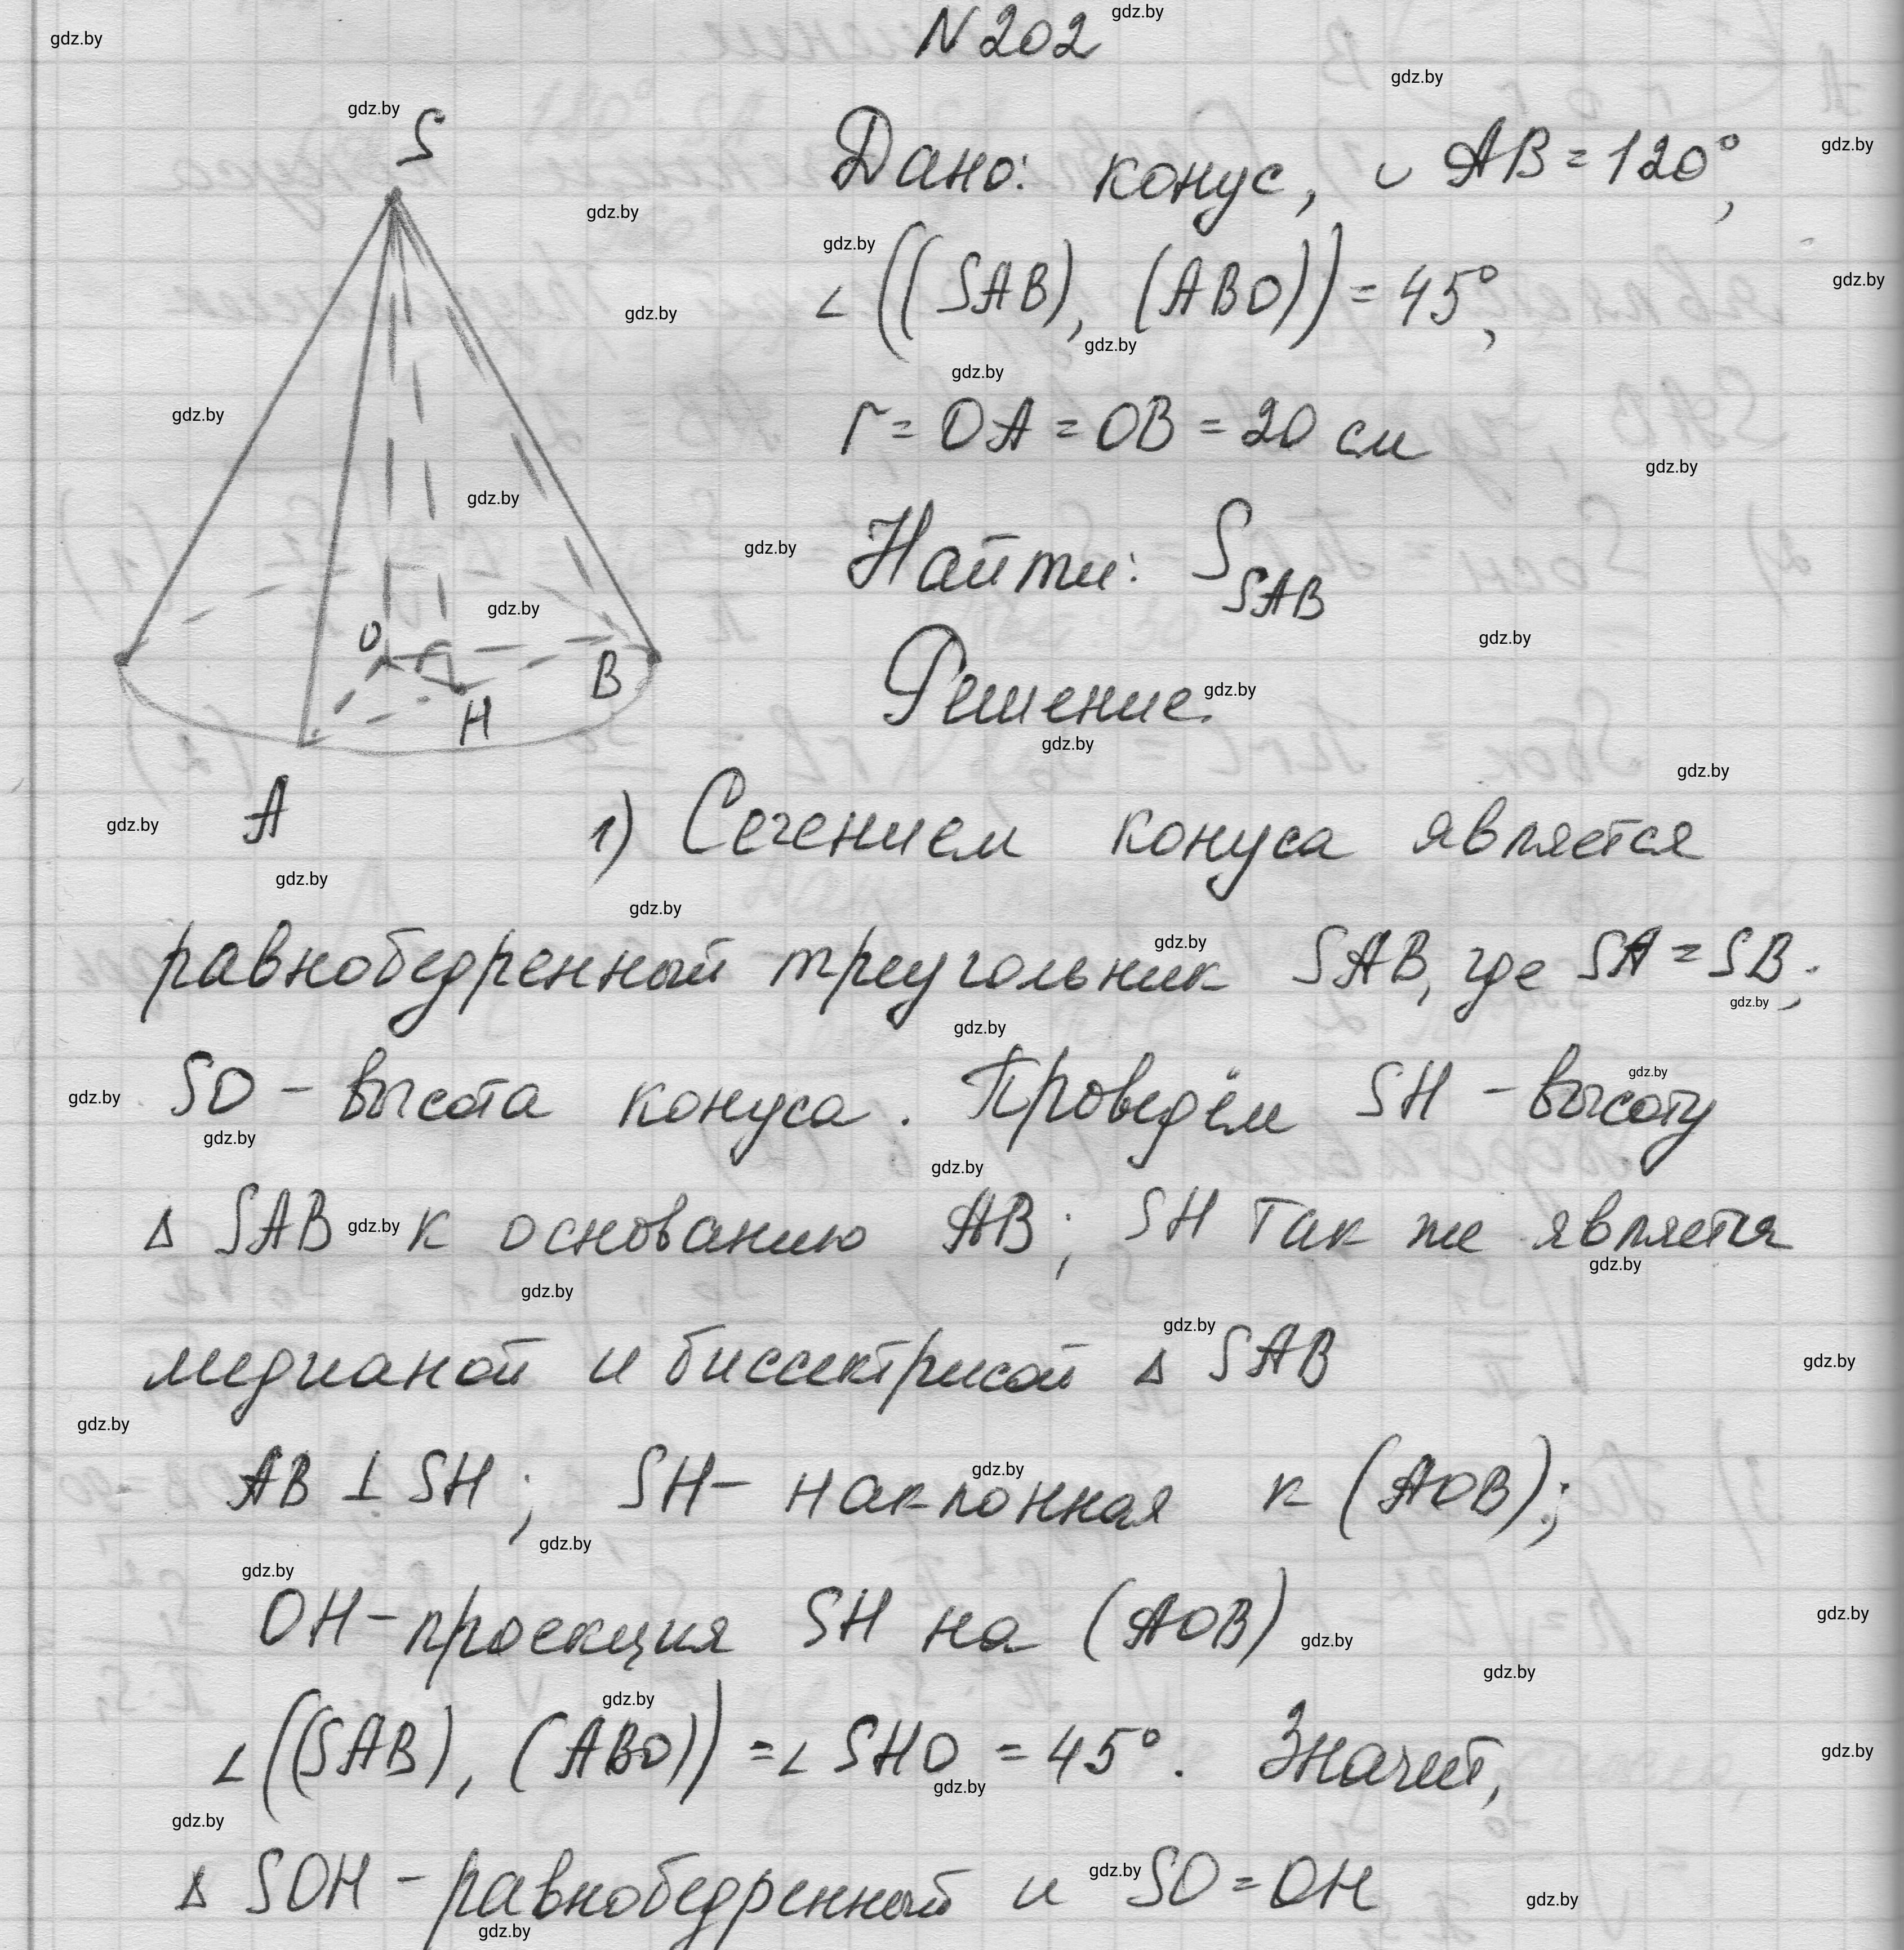 N 202
Дано: конус, ◡ AB = 120°,
∠ ((SAB), (ABO)) = 45°,
r = OA = OB = 20 см
Найти: S_SAB
Решение.
S
O
B
H
A
1) Сечением конуса является
равнобедренный треугольник SAB, где SA = SB;
SO – высота конуса. Проведём SH – высоту
Δ SAB к основанию AB; SH так же является
медианой и биссектрисой Δ SAB
AB ⊥ SH; SH – наклонная к (AOB);
OH – проекция SH на (AOB)
∠ ((SAB), (ABO)) = ∠ SHO = 45°. Значит,
Δ SOH – равнобедренный и SO = OH
gdz.by